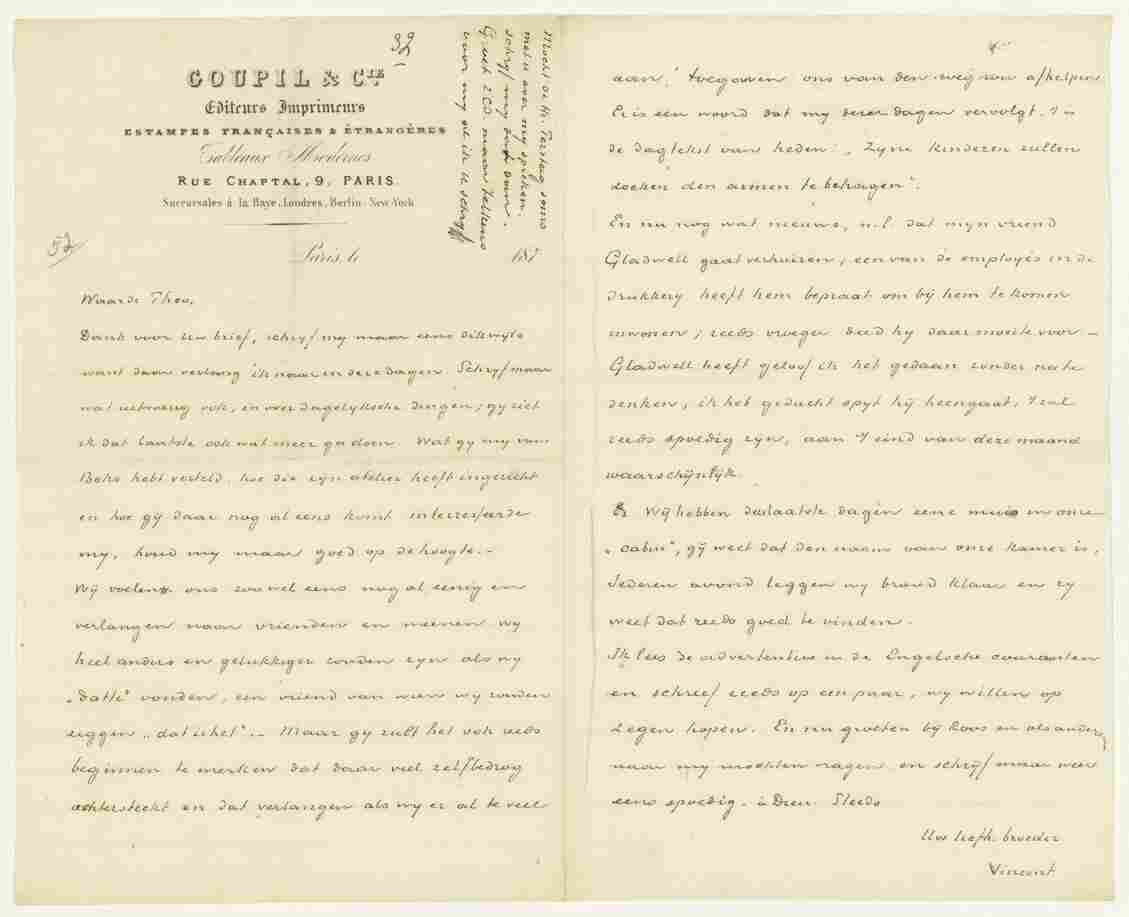 32
GOUPIL & CIE
Editeurs Imprimeurs
ESTAMPES FRANÇAISES & ÉTRANGÈRES
Tableaux Modernes
RUE CHAPTAL, 9, PARIS.
Succursales à la Haye, Londres, Berlin, New-York
52
Paris, le 187
Mocht de Hr. Tersteeg soms
met u over mij spreken.
schrijf mij dan
Groet Z.Ed. maar telkens
voor mij als ik u schrijf
Waarde Theo,
Dank voor Uw brief, schrijf my maar eens dikwijls
want daar verlang ik naar in deze dagen. Schrijf maar
wat uitvoerig ook, en over dagelyksche dingen; gy ziet
ik dat laatste ook wat meer ga doen. Wat gy my van
Boks hebt verteld, hoe die zijn atelier heeft ingericht
en hoe gij daar nog al eens komt interesseerde
my, houd my maar goed op de hoogte. –
Wij voelen ons zoo wel eens nog al eenig en
verlangen naar vrienden en meenen wy
heel anders en gelukkiger zouden zyn als wy
„datte" vonden, een vriend van wien wy zouden
zeggen „dat is het". – Maar gy zult het ook reeds
beginnen te merken dat daar veel zelfbedrog
achtersteekt en dat verlangen als wy er al te veel
aan toegaven ons van den weg zou afhelpen
Er is een woord dat my dezer dagen vervolgt, 't is
de dagtekst van heden: „Zyne kinderen zullen
zoeken den armen te behagen".
En nu nog wat nieuws, n.l. dat myn vriend
Gladwell gaat verhuizen, een van de employés in de
drukkery heeft hem bepraat om bij hem te komen
inwonen; reeds vroeger deed hy daar moeite voor –
Gladwell heeft geloof ik het gedaan zonder na te
denken, ik heb geducht spyt hij heengaat, 't zal
reeds spoedig zijn, aan 't eind van deze maand
waarschijnlijk.
Wij hebben de laatste dagen eene muis in onze
„cabin", gij weet dat den naam van onze kamer is,
Iederen avond leggen wy brood klaar en zy
weet dat reeds goed te vinden.
Ik lees de advertentien in de Engelsche couranten
en schreef reeds op een paar, wy willen op
zegen hopen. En nu groeten bij Roos en als anderen
naar my mochten vragen en schrijf maar weer
eens spoedig. à Dieu. Steeds
Uw liefh. broeder
Vincent